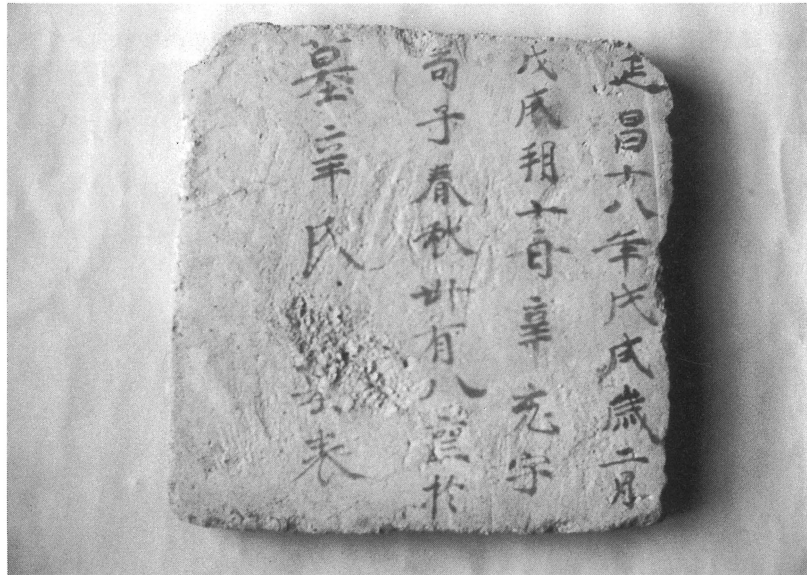 延昌十八年戊戌歲二月
戊戌朔十一日辛充宗
苟子春秋卌有八於
墓辛氏表